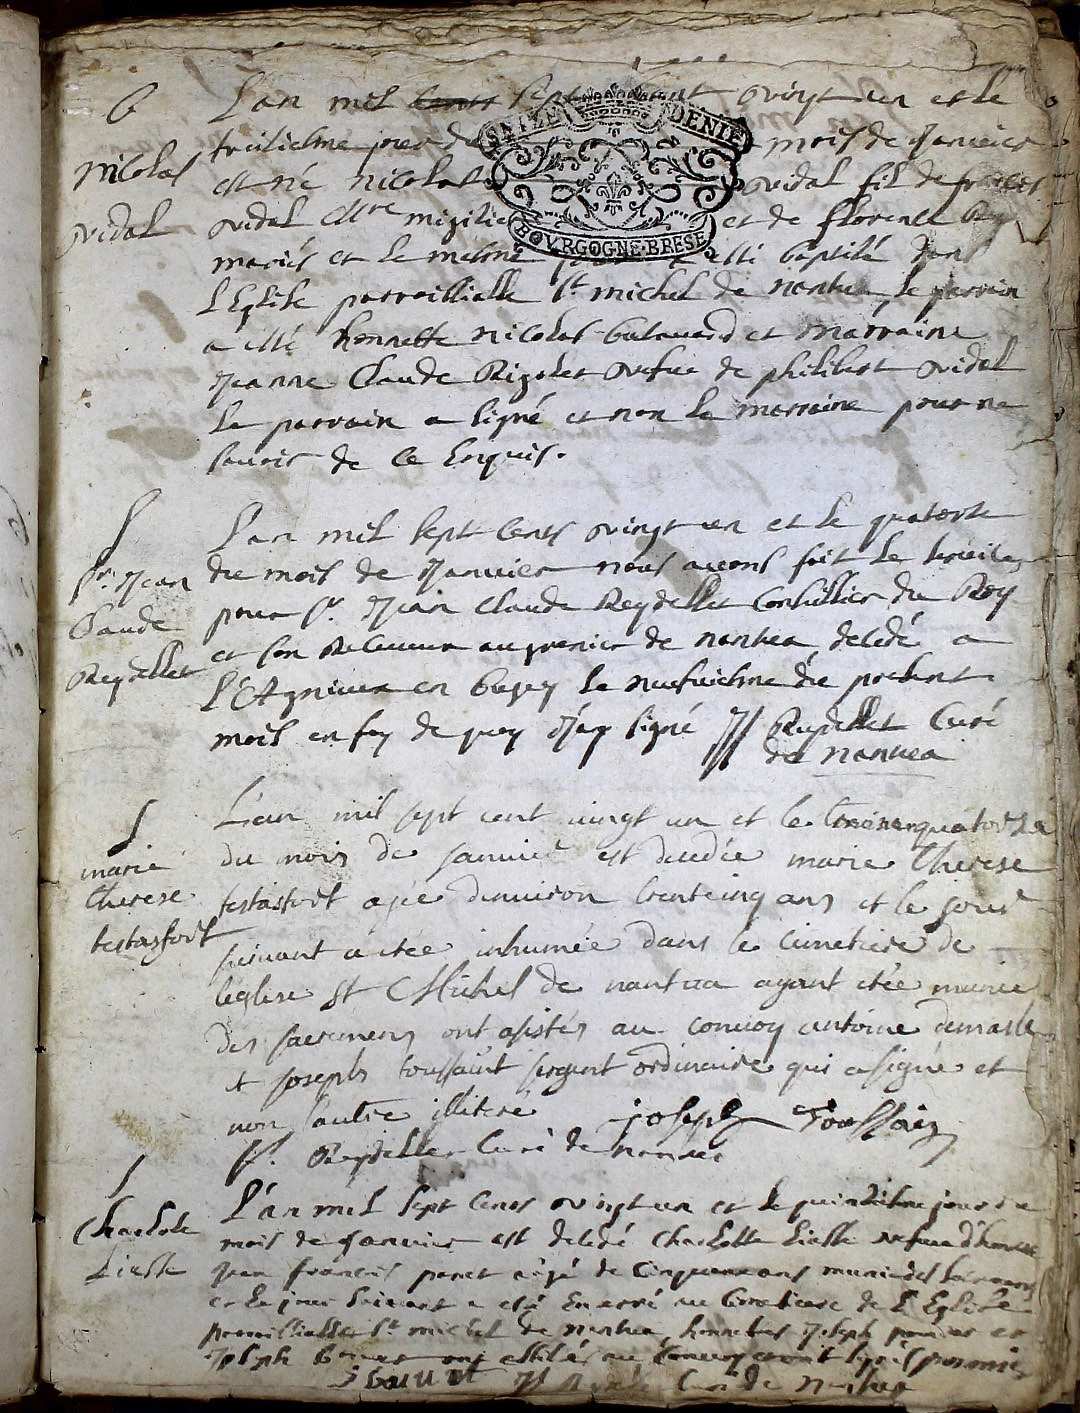 b
Nicolas
Vidal
L'an mil sept cent vingt un et le
treisiesme jour du mois de Janvier
est né Nicolas Vidal fil de
Vidal et de florence
mariés et le mesme baptisé dans
l'Eglise parroissialle St michel de nantua, le parrain
a esté honneste nicolas et marraine
Jeanne Claude vefue de philibert vidal
le parrain a signé et non la marraine pour ne
savoir de ce Enquis.
SEIZE DENIE
BOVRGOGNE BRESE
S
Sr. Jean
Claude
Reydellet
L'an mil sept cents vingt un et le quatorse
du mois de Janvier nous avons fait le
pour Sr. Jean Claude Reydellet Conseillier du Roy
et son Receveur au grenier de nantua, decedé a
en bugey le neufviesme du present
mois en foy de quoy j'ay signé Reydellet Curé
de nantua
S
marie
Therese
testasfort
L'an mil sept cent vingt un et le quatorze
du mois de janvier est decedée marie Therese
testasfort agée denviron trentcinq ans et le jour
suivant a etée inhumée dans le cimetiere de
leglise St Michel de nantua ayant etée munie
des sacremens ont asistés au convoy antoine
et joseph toussaint sergent ordinaire qui a signé et
non lautre illiteré joseph Toussain
Reydellet Curé de nantua
S
Charlotte
L'an mil sept cens vingt un et le quinziesme jour du
mois de Janvier est decedé Charlotte vefue d'honeste
Jean francois agé de Cinquante ans munie des sacremens
et le jour suivant a esté Enterré au Cimetiere de l'Eglise
parroissialle St michel de nantua, honnestes Joseph et
Joseph ont assistés au Convoy
Curé de nantua